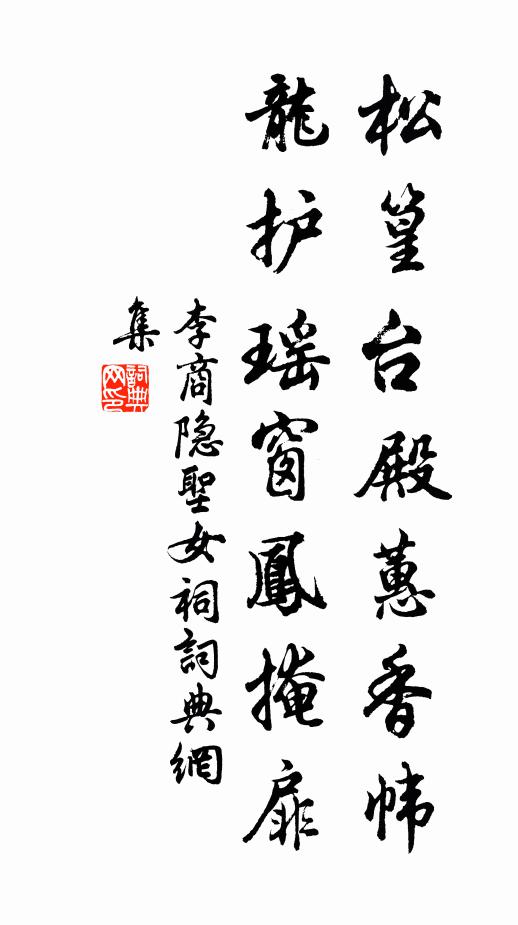 松篁台殿蕙香帏
龍护瑶窗鳳掩扉
李商隐聖女祠詞典網
集
詞典网印